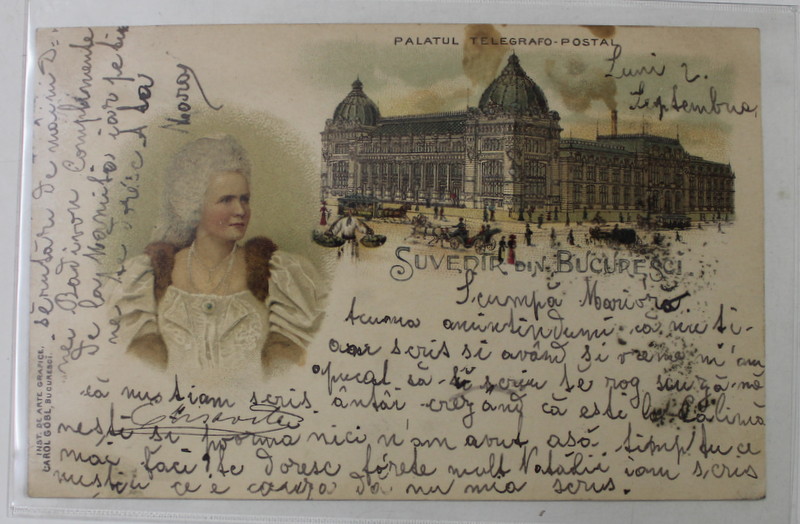 PALATUL TELEGRAFO-POSTAL
Luni 2.
Septembrie
SUVENIR DIN BUCUREȘCI
Scumpă Marioră
acuma amintindumi că nu ti-
am scris si având si vreme m'am
apucat să-ti scriu te rog scuză-mă
că nu tiam scris întâi crezând că esti la Călimă
nesti si porma nici n'am avut asă timp tu ce
mai faci? te doresc fórte mult Natălii iam scris
nustiu ce e cauza Da nu mia scris.
sărutări de maini D-
nei Radivon Complimente
de la Mamita iar pe tine
te doresc A ta
INST. DE ARTE GRAFICE,
CAROL GÖBL, BUCURESCI.